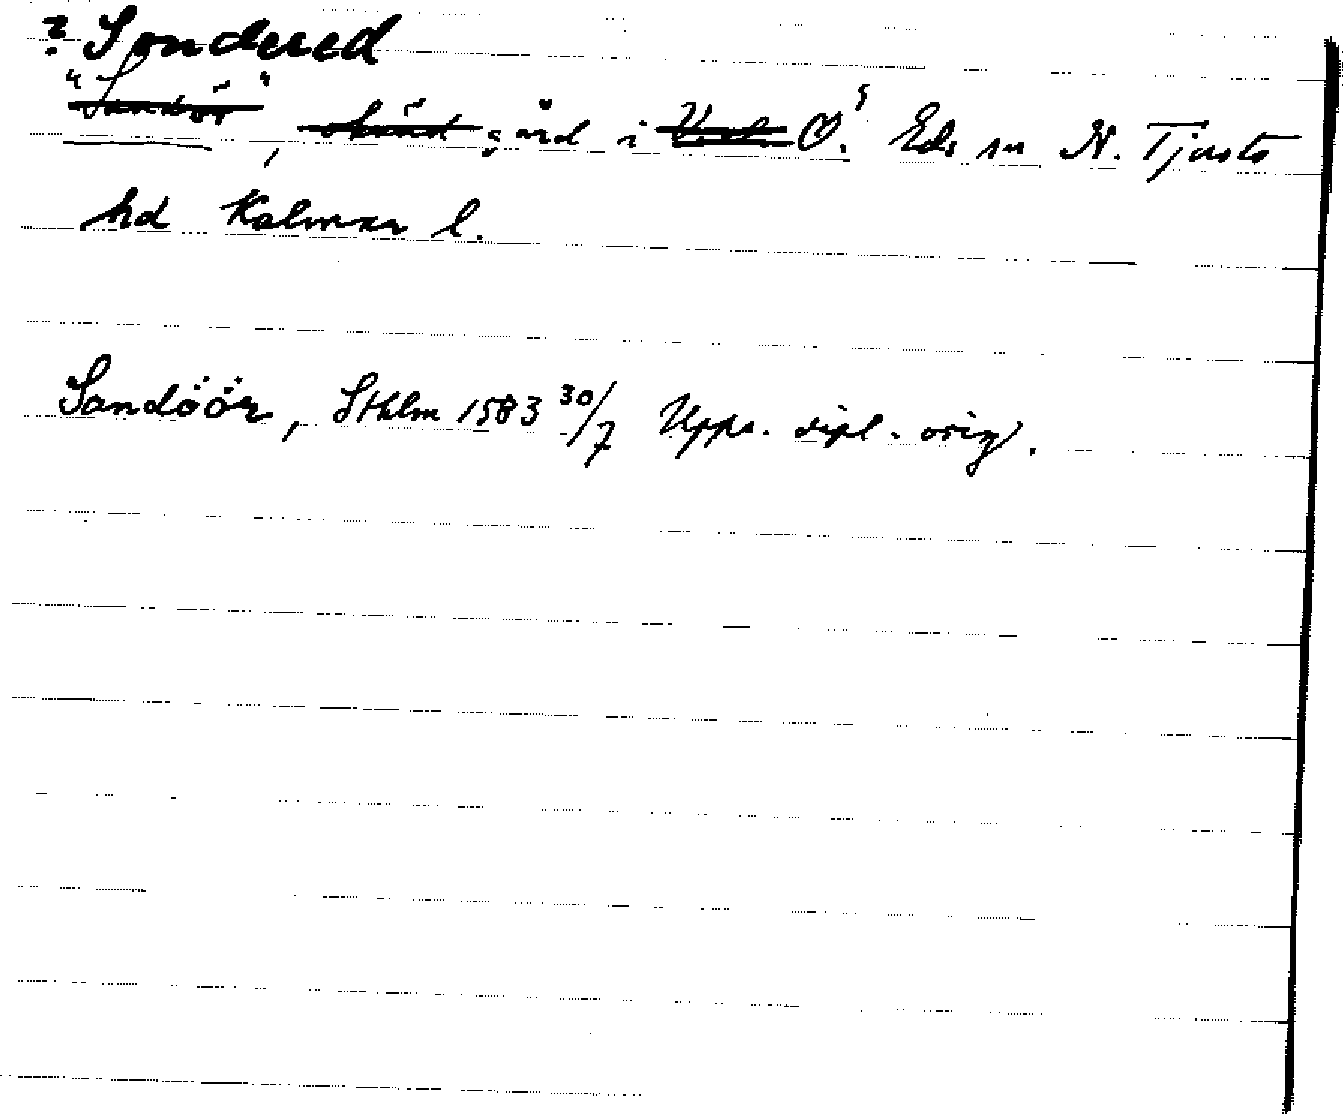 ? Sondered
"Sandör", okänd gård i V. Ö. Eds sn N. Tjusts
hd Kalmar l.
Sandöör, Sthlm 1583 30/7 Upps. dipl. orig.